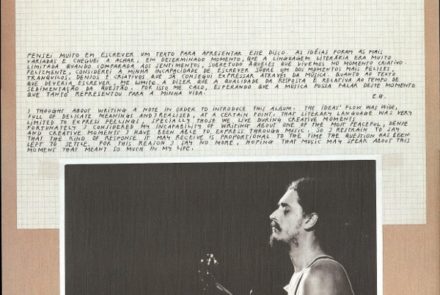 PENSEI MUITO EM ESCREVER UM TEXTO PARA APRESENTAR ESSE DISCO. AS IDÉIAS FORAM AS MAIS
VARIADAS E CHEGUEI A ACHAR, EM DETERMINADO MOMENTO, QUE A LINGUAGEM LITERÁRIA ERA MUITO
LIMITADA QUANDO COMPARADA AOS SENTIMENTOS, SOBRETUDO ÀQUELES QUE VIVEMOS NO MOMENTO CRIATIVO.
FELIZMENTE, CONSIDEREI A MINHA INCAPACIDADE DE ESCREVER SOBRE UM DOS MOMENTOS MAIS FELIZES
TRANQUILOS, DENSOS E CRIATIVOS QUE JÁ CONSEGUI EXPRESSAR ATRAVÉS DA MÚSICA. QUANTO AO TEXTO
QUE DEVERIA ESCREVER, ME LIMITO A DIZER QUE A QUALIDADE DA RESPOSTA É RELATIVA AO TEMPO DE
SEDIMENTAÇÃO DA QUESTÃO. POR ISSO ME CALO, ESPERANDO QUE A MÚSICA POSSA FALAR DESTE MOMENTO
QUE TANTO REPRESENTOU PARA A MINHA VIDA.
E.G.
I THOUGHT ABOUT WRITING A NOTE IN ORDER TO INTRODUCE THIS ALBUM. THE IDEAS' FLOW WAS WIDE,
FULL OF DELICATE MEANINGS AND I REALISED, AT A CERTAIN POINT, THAT LITERARY LANGUAGE WAS VERY
LIMITED TO EXPRESS FEELINGS, SPECIALLY THOSE WE LIVE DURING CREATIVE MOMENTS.
FORTUNATELY I CONSIDERED MY INCAPABILITY OF WRITING ABOUT ONE OF THE MOST PEACEFUL, DENSE
AND CREATIVE MOMENTS I HAVE BEEN ABLE TO EXPRESS THROUGH MUSIC, SO I RESTRAIN TO SAY
THAT THE KIND OF RESPONSE IT MAY RECEIVE IS PROPORTIONAL TO THE TIME THE QUESTION HAS BEEN
LEFT TO SETTLE. FOR THIS REASON I SAY NO MORE, HOPING THAT MUSIC MAY SPEAK ABOUT THIS
MOMENT THAT MEANT SO MUCH IN MY LIFE.